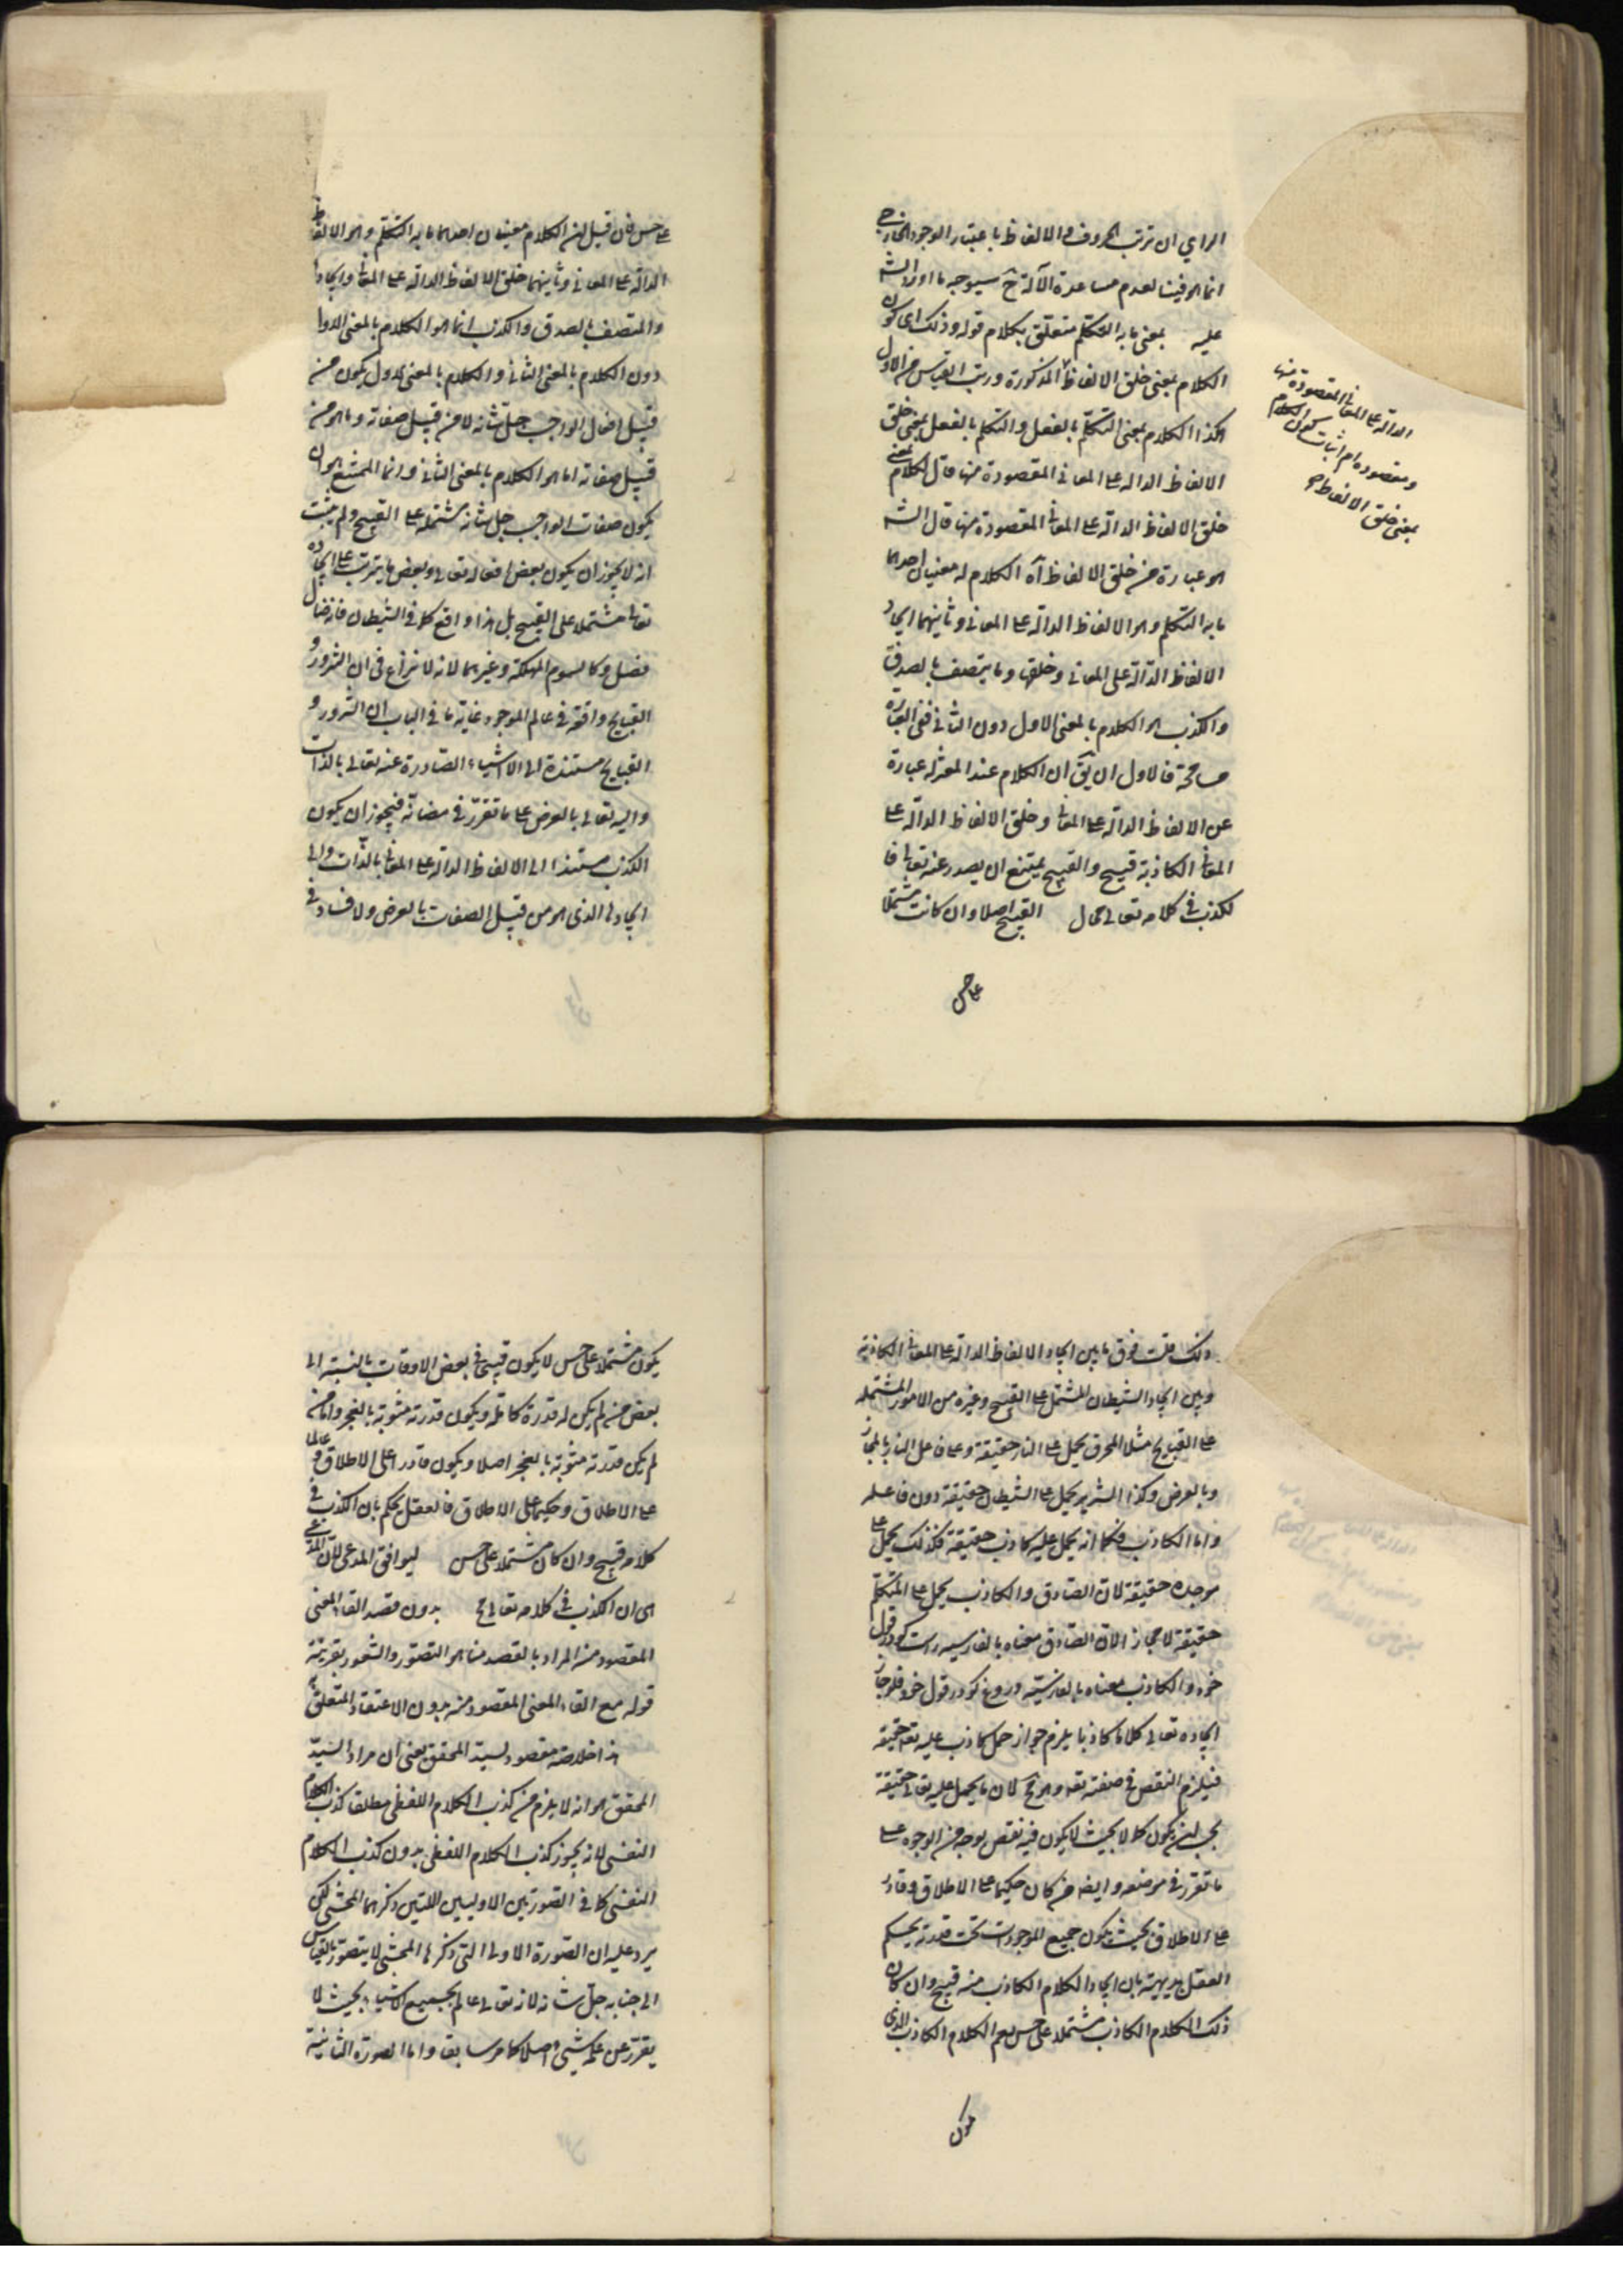 الراى ان ترتب الحروف و الالفاظ باعتبار الوجود الخارجى
انما هو فينا لعدم مساعدة الآلة ح سيوجه ما اورد الشه
عليه بمعنى ما به التكلم متعلق بكلام قوله وذلك اى كون
الكلام بمعنى خلق الالفاظ المذكورة ورتب القياس من الاول
هكذا الكلام بمعنى التكلم بالفعل والتكلم بالفعل بمعنى خلق
الالفاظ الدالة على المعانى المقصودة منها قال كلام بمعنى
خلق الالفاظ الدالة على المعانى المقصودة منها قال الشه
هو عبارة عن خلق الالفاظ آه الكلام له معنيان احدهما
ما به التكلم وهو الالفاظ الدالة على المعانى وثانيهما ايجاد
الالفاظ الدالة على المعانى وخلقها وما يتصف بالصدق
والكذب هو الكلام بالمعنى الاول دون الثانى ففى العبارة
مسامحة فالاول ان يق ان الكلام عند المعتزلة عبارة
عن الالفاظ الدالة على المعانى وخلق الالفاظ الدالة على
المعانى الكاذبة قبيح والقبيح يمتنع ان يصدر عنه تعالى فا
لكذب فى كلامه تعالى محال القبيح اصلا وان كانت مشتملا
على حسن
الدالة على المعانى المقصودة منها
ومقصوده اثبات كون الكلام
بمعنى خلق الالفاظ
على حسن فان قيل ان الكلام معنيان احدهما ما به التكلم وهو الالفاظ
الدالة على المعانى وثانيهما خلق الالفاظ الدالة على المعانى وايجادها
والمتصف بالصدق والكذب انما هو الكلام بالمعنى الاول
دون الكلام بالمعنى الثانى والكلام بالمعنى الاول يكون من
قبيل افعال الواجب جل شانه لا من قبيل صفاته وما هو من
قبيل صفاته انما هو الكلام بالمعنى الثانى وانما الممتنع هو ان
يكون صفات الواجب جل شانه مشتملة على القبيح ولم يثبت
انه لا يجوز ان يكون بعض افعاله تعالى وبعض ما يترتب على ايجاده
تعالى مشتملا على القبيح بل هذا واقع كما فى الشيطان فانه ضال
مضل وكالسموم المهلكة وغيرهما لانه لا نزاع فى ان الشرور و
القبايح واقعة فى عالم الموجود غاية ما فى الباب ان الشرور و
القبايح مستندة الى الاشياء الصادرة عنه تعالى بالذات
واليه تعالى بالعرض على ما تقرر فى مضانه فيجوز ان يكون
الكذب مستندا الى الالفاظ الدالة على المعانى بالذات والى
ايجادها الذى هو من قبيل الصفات بالعرض ولا فساد فى
ذلك قلت فرق ما بين ايجاد الالفاظ الدالة على المعانى الكاذبة
وبين ايجاد الشيطان المشتمل على القبيح وغيره من الامور المشتملة
على القبايح مثلا المحرق يحمل على النار حقيقة وعلى فاعل النار بالمجاز
وبالعرض وكذا الشرير يحمل على الشيطان حقيقة دون فاعله
واما الكاذب فكما انه يحمل عليه كاذب حقيقة فكذلك يحمل على
موجده حقيقة لان الصادق والكاذب يحمل على المتكلم
حقيقة لا مجازا لان الصادق معناه بالفارسيه راست كو در قول
خود والكاذب معناه بالفارسية دروغ كو در قول خود فلو جاز
ايجاده تعالى كلاما كاذبا يلزم جواز حمل كاذب عليه تعه حقيقة
فيلزم النقص فى صفته تعه وهو مح لان ما يحمل عليه تعالى حقيقة
يجب ان يكون كمالا بحيث لا يكون فيه نقص بوجه من الوجوه على
ما تقرر فى موضعه وايضا من كان حكيما على الاطلاق وقادر
على الاطلاق بحيث يكون جميع الموجودات تحت قدرته يحكم
العقل بديهية بان ايجاد الكلام الكاذب منه قبيح وان كان
ذلك الكلام الكاذب مشتملا على حسن نعم الكلام الكاذب الذى
يكون
يكون مشتملا على حسن لا يكون قبيحا فى بعض الاوقات بالنسبة الى
بعض من لم يكن له قدرة كاملة ويكون قدرته مشوبة بالعجز واما من
لم يكن قدرته مشوبة بالعجز اصلا ويكون قادرا على الاطلاق وعالما
على الاطلاق وحكيما على الاطلاق فالعقل يحكم بان الكذب فى
كلامه قبيح وان كان مشتملا على حسن ليوافق المدعى لان المدعى
هى ان الكذب فى كلامه تعالى مح بدون قصد القاء المعنى
المقصود منه المراد بالقصد هنا هو التصور والشعور بقرينة
قوله مع القاء المعنى المقصود منه بدون الاعتقاد المتعلق به
هذا خلاصة مقصود السيد المحقق يعنى ان مراد السيد
المحقق هو انه لا يلزم من كذب الكلام اللفظى مطلقا كذب الكلام
النفسى لانه يجوز كذب الكلام اللفظى بدون كذب الكلام
النفسى كما فى الصورتين الاوليين اللتين ذكرهما المحشى لكن
يرد عليه ان الصورة الاولى التى ذكرها المحشى لا يتصور بالقياس
الى جنابه جل شانه لانه تعالى عالم بجميع الاشياء بحيث لا
يغرب عن علمه شىء اصلا كما مر سابقا واما الصورة الثانية